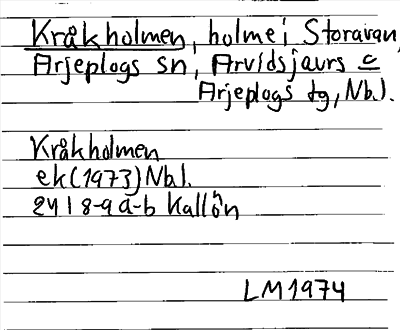 Kråkholmen, holme i Storavan,
Arjeplogs sn, Arvidsjaurs o
Arjeplogs tg, Nb.l.
Kråkholmen
ek(1973)Nb.l.
24I 8-9 a-b Kallön
LM1974